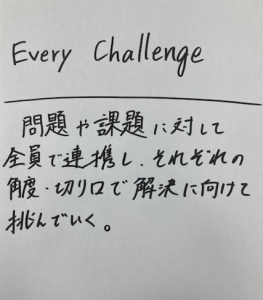 Every Challenge
問題や課題に対して
全員で連携し、それぞれの
角度・切り口で解決に向けて
挑んでいく。